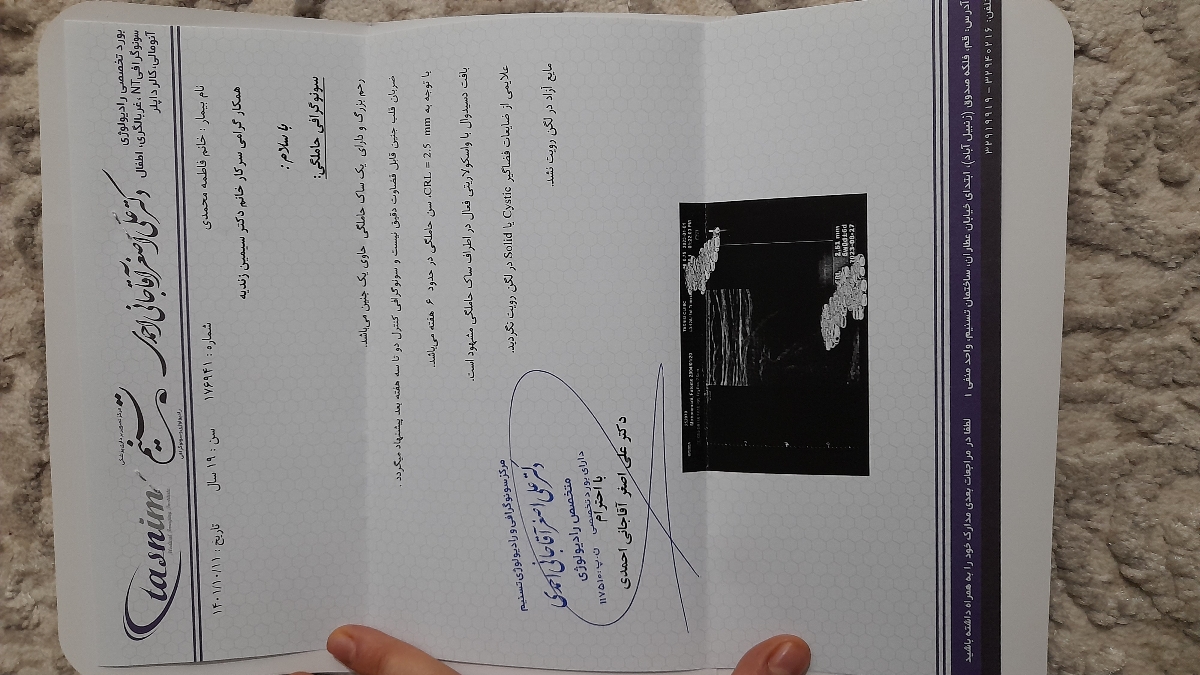 tasnim
تسنیم
دکتر علی اصغر آقاجانی احمدی
بورد تخصصی رادیولوژی
سونوگرافی NT، غربالگری، اطفال
آنومالی، کالر داپلر
نام بیمار : خانم فاطمه محمدی
شماره : ۱۷۶۹۴۱
سن : ۱۹ سال
تاریخ : ۱۴۰۱/۱۰/۱۱
همکار گرامی سرکار خانم دکتر سیمین زندیه
با سلام؛
سونوگرافی حاملگی:
رحم بزرگ و دارای یک ساک حاملگی حاوی یک جنین می‌باشد.
ضربان قلب جنین قابل قضاوت دقیق نیست و سونوگرافی کنترل دو تا سه هفته بعد پیشنهاد میگردد .
با توجه به CRL = 2.5 mm، سن حاملگی در حدود ۶ هفته می‌باشد.
بافت دسیدوال با واسکولاریتی فعال در اطراف ساک حاملگی مشهود است.
علایمی از ضایعات فضاگیر Cystic یا Solid در لگن رویت نگردید.
مایع آزاد در لگن رویت نشد.
مرکز سونوگرافی و رادیولوژی تسنیم
دکتر علی اصغر آقاجانی احمدی
متخصص رادیولوژی
دارای بورد تخصصی
ن.پ: ۱۱۷۵۱۰
با احترام
دکتر علی اصغر آقاجانی احمدی
2.51 mm
6w0d±6d
2023-08-27
آدرس: قم، فلکه صدوق (زنبیل آباد)، ابتدای خیابان عطاران، ساختمان تسنیم، واحد منفی ۱
تلفن: ۳۲۹۴۰۲۱۶ - ۳۲۹۱۹۹۱۹
لطفا در مراجعات بعدی مدارک خود را به همراه داشته باشید